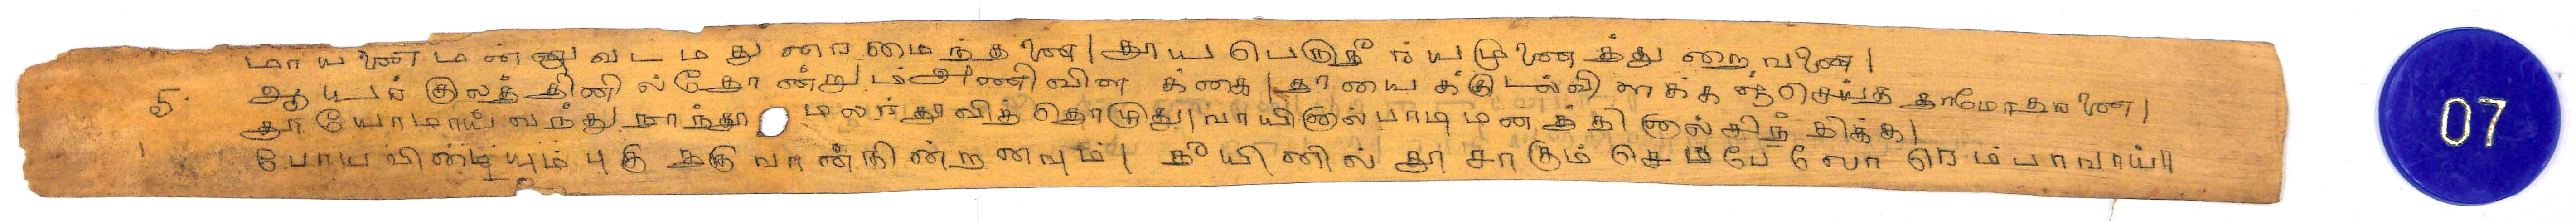 மாயனை மன்னு வடமதுரை மைந்தனை | தூய பெருநீர் யமுனைத்துறைவனை |
௫ ஆயர் குலத்தினில் தோன்றும் அணிவிளக்கை | தாயைக்குடல்விளக்கஞ்செய்த தாமோதரனை |
தூயோமாய் வந்து நாந்தூ மலர்தூவித்தொழுது | வாயினால் பாடி மனத்தினால் சிந்திக்க |
போய பிழையும் புகுதருவான் நின்றனவும் | தீயினில் தூசாகும் செப்பேலோ ரெம்பாவாய் ||
07